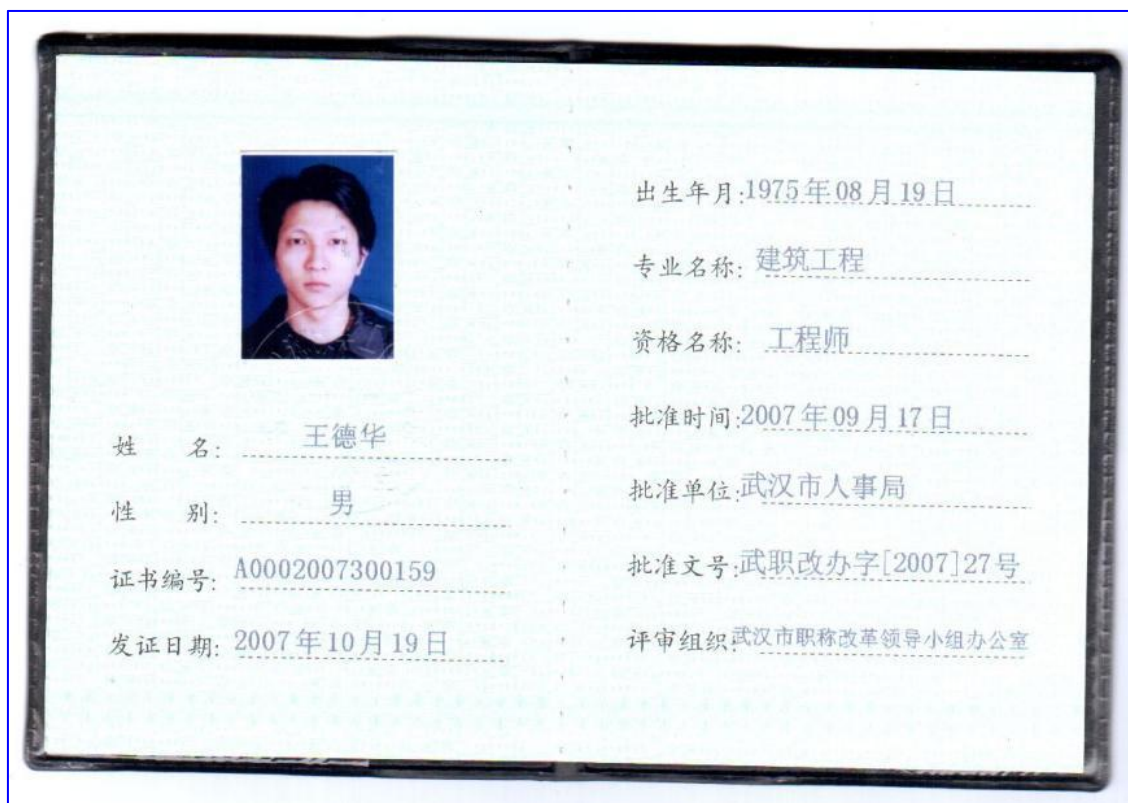 姓 名: 王德华
性 别: 男
证书编号: A0002007300159
发证日期: 2007年10月19日
出生年月:1975年08月19日
专业名称: 建筑工程
资格名称: 工程师
批准时间:2007年09月17日
批准单位:武汉市人事局
批准文号:武职改办字[2007]27号
评审组织:武汉市职称改革领导小组办公室